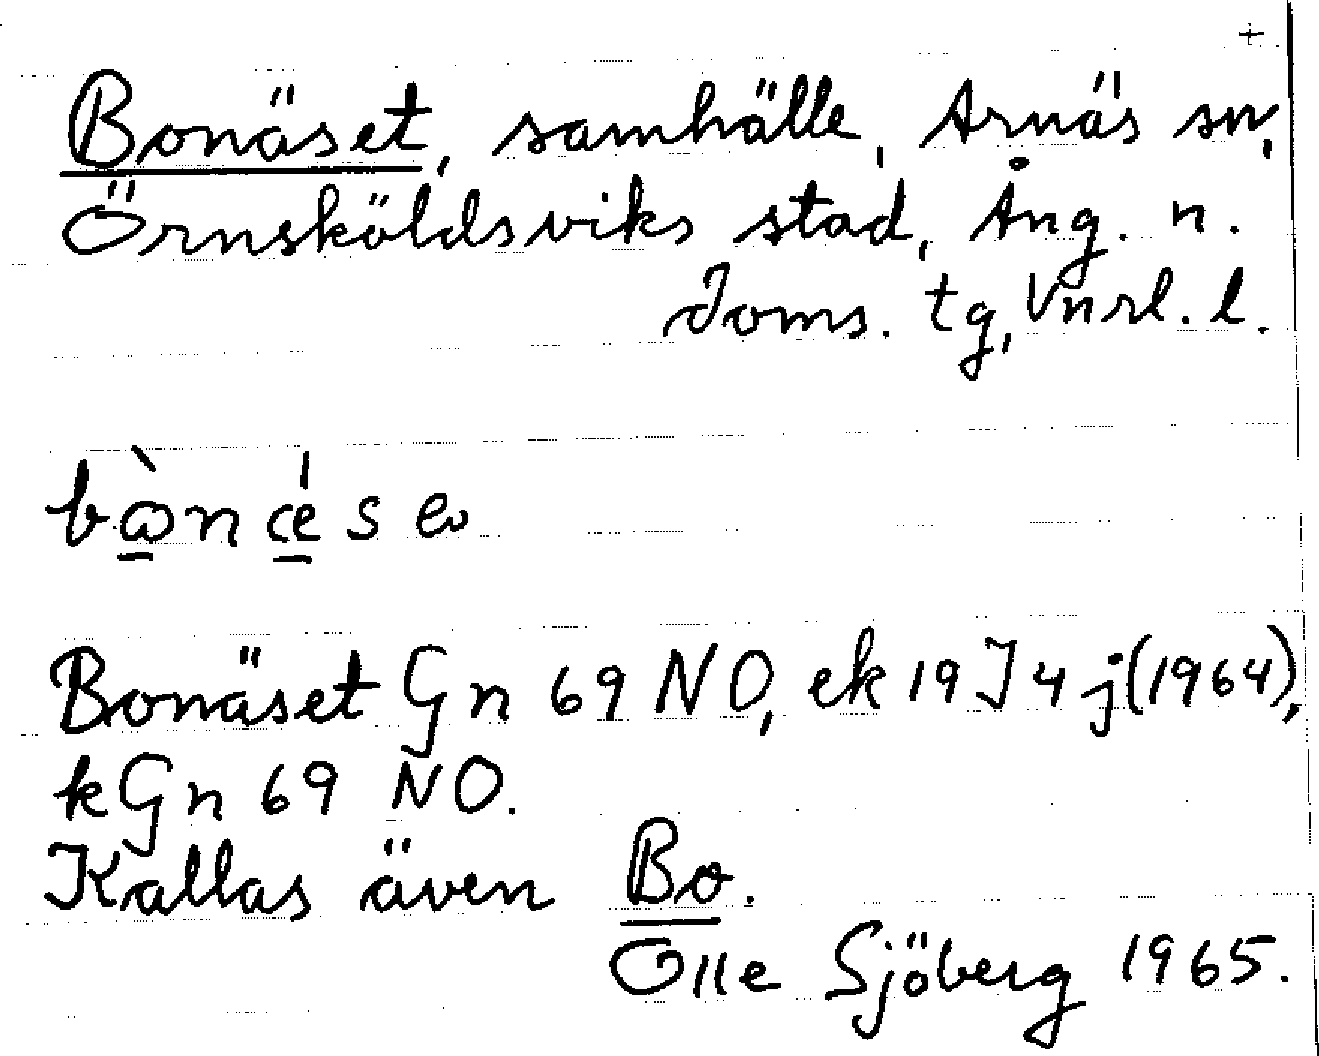 +
Bonäset, samhälle, Arnäs sn,
Örnsköldsviks stad, Ång. n.
doms. tg, Vnrl. l.
bὼnǽse
Bonäset Gn 69 NO, ek 19 J 4 j (1964),
k Gn 69 NO.
Kallas även Bo.
Olle Sjöberg 1965.